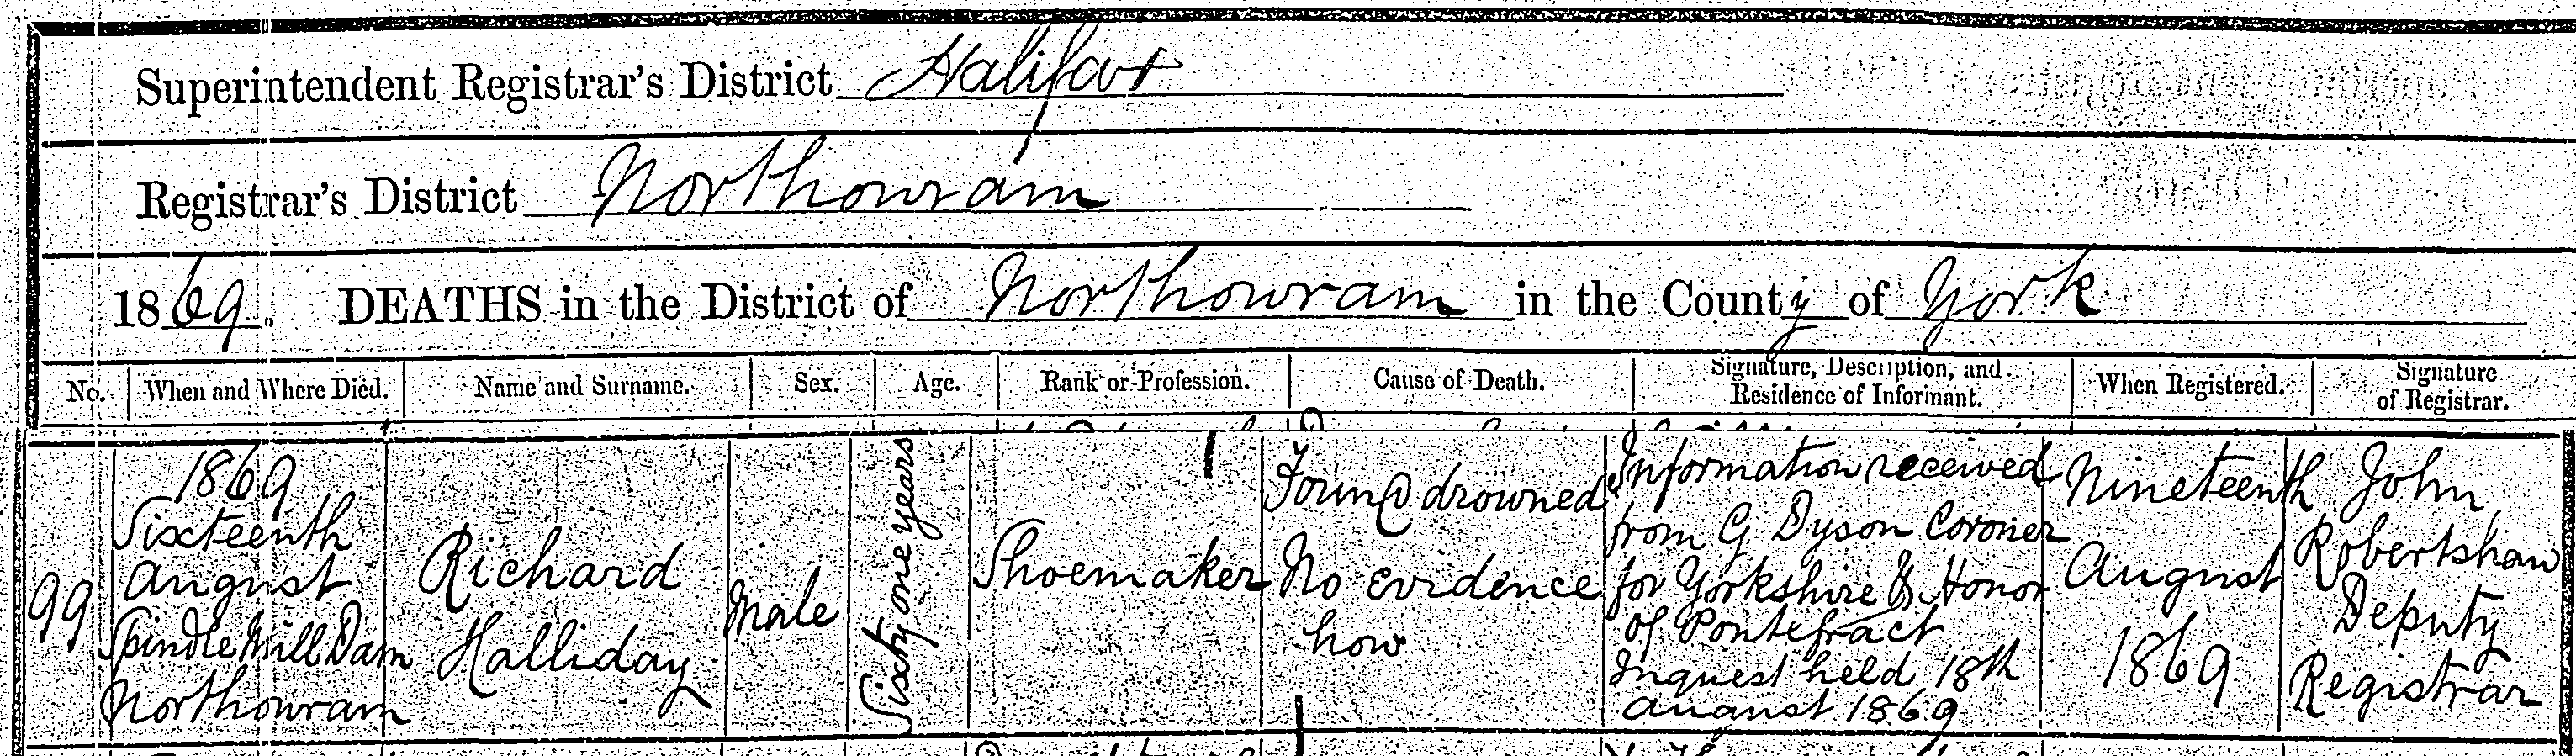 Superintendent Registrar's District Halifax
Registrar's District Northowram
1869. DEATHS in the District of Northowram in the County of York
No. When and Where Died. Name and Surname. Sex. Age. Rank or Profession. Cause of Death. Signature, Description, and Residence of Informant. When Registered. Signature of Registrar.
99
1869
Sixteenth
August
Spindle Mill Dam
Northowram
Richard
Halliday
Male
Sixty one years
Shoemaker
Found drowned
No evidence
how
Information received
from G. Dyson Coroner
for Yorkshire & Honor
of Pontefract
Inquest held 18th
August 1869
Nineteenth
August
1869
John
Robertshaw
Deputy
Registrar